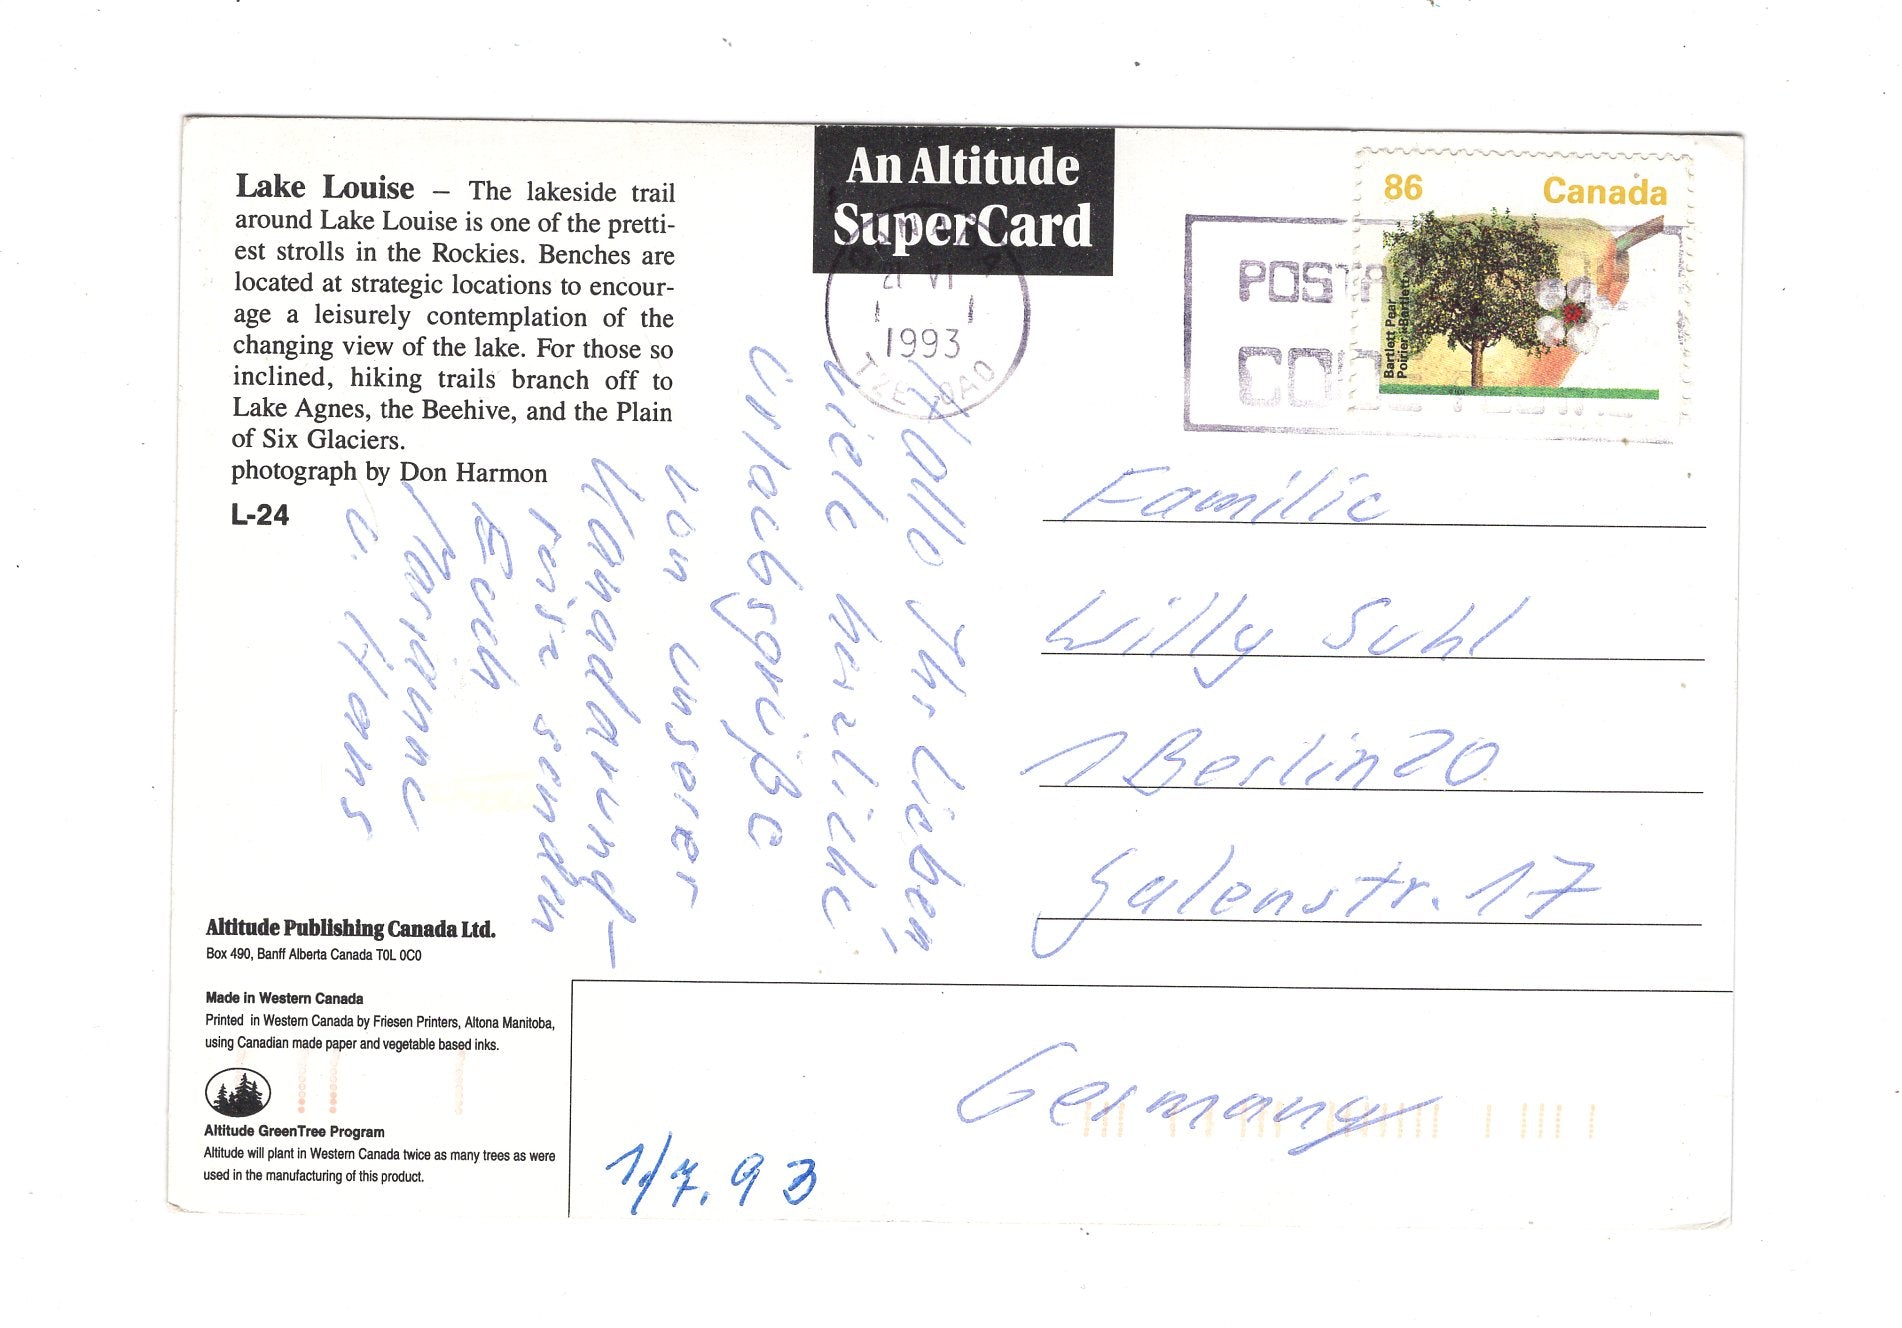 Lake Louise – The lakeside trail
around Lake Louise is one of the pretti-
est strolls in the Rockies. Benches are
located at strategic locations to encour-
age a leisurely contemplation of the
changing view of the lake. For those so
inclined, hiking trails branch off to
Lake Agnes, the Beehive, and the Plain
of Six Glaciers.
photograph by Don Harmon
L-24
An Altitude
SuperCard
21 VI
1993
86 Canada
Bartlett Pear
Poirier Bartlett
Hallo Ihr Lieben,
viele herzliche
Urlaubsgrüße
von unserer
Kanadarund-
reise senden
Euch
Marianne
u. Hans
Familie
Willy Suhl
1 Berlin 20
Galenstr. 17
Germany
1/7.93
Altitude Publishing Canada Ltd.
Box 490, Banff Alberta Canada T0L 0C0
Made in Western Canada
Printed in Western Canada by Friesen Printers, Altona Manitoba,
using Canadian made paper and vegetable based inks.
Altitude GreenTree Program
Altitude will plant in Western Canada twice as many trees as were
used in the manufacturing of this product.